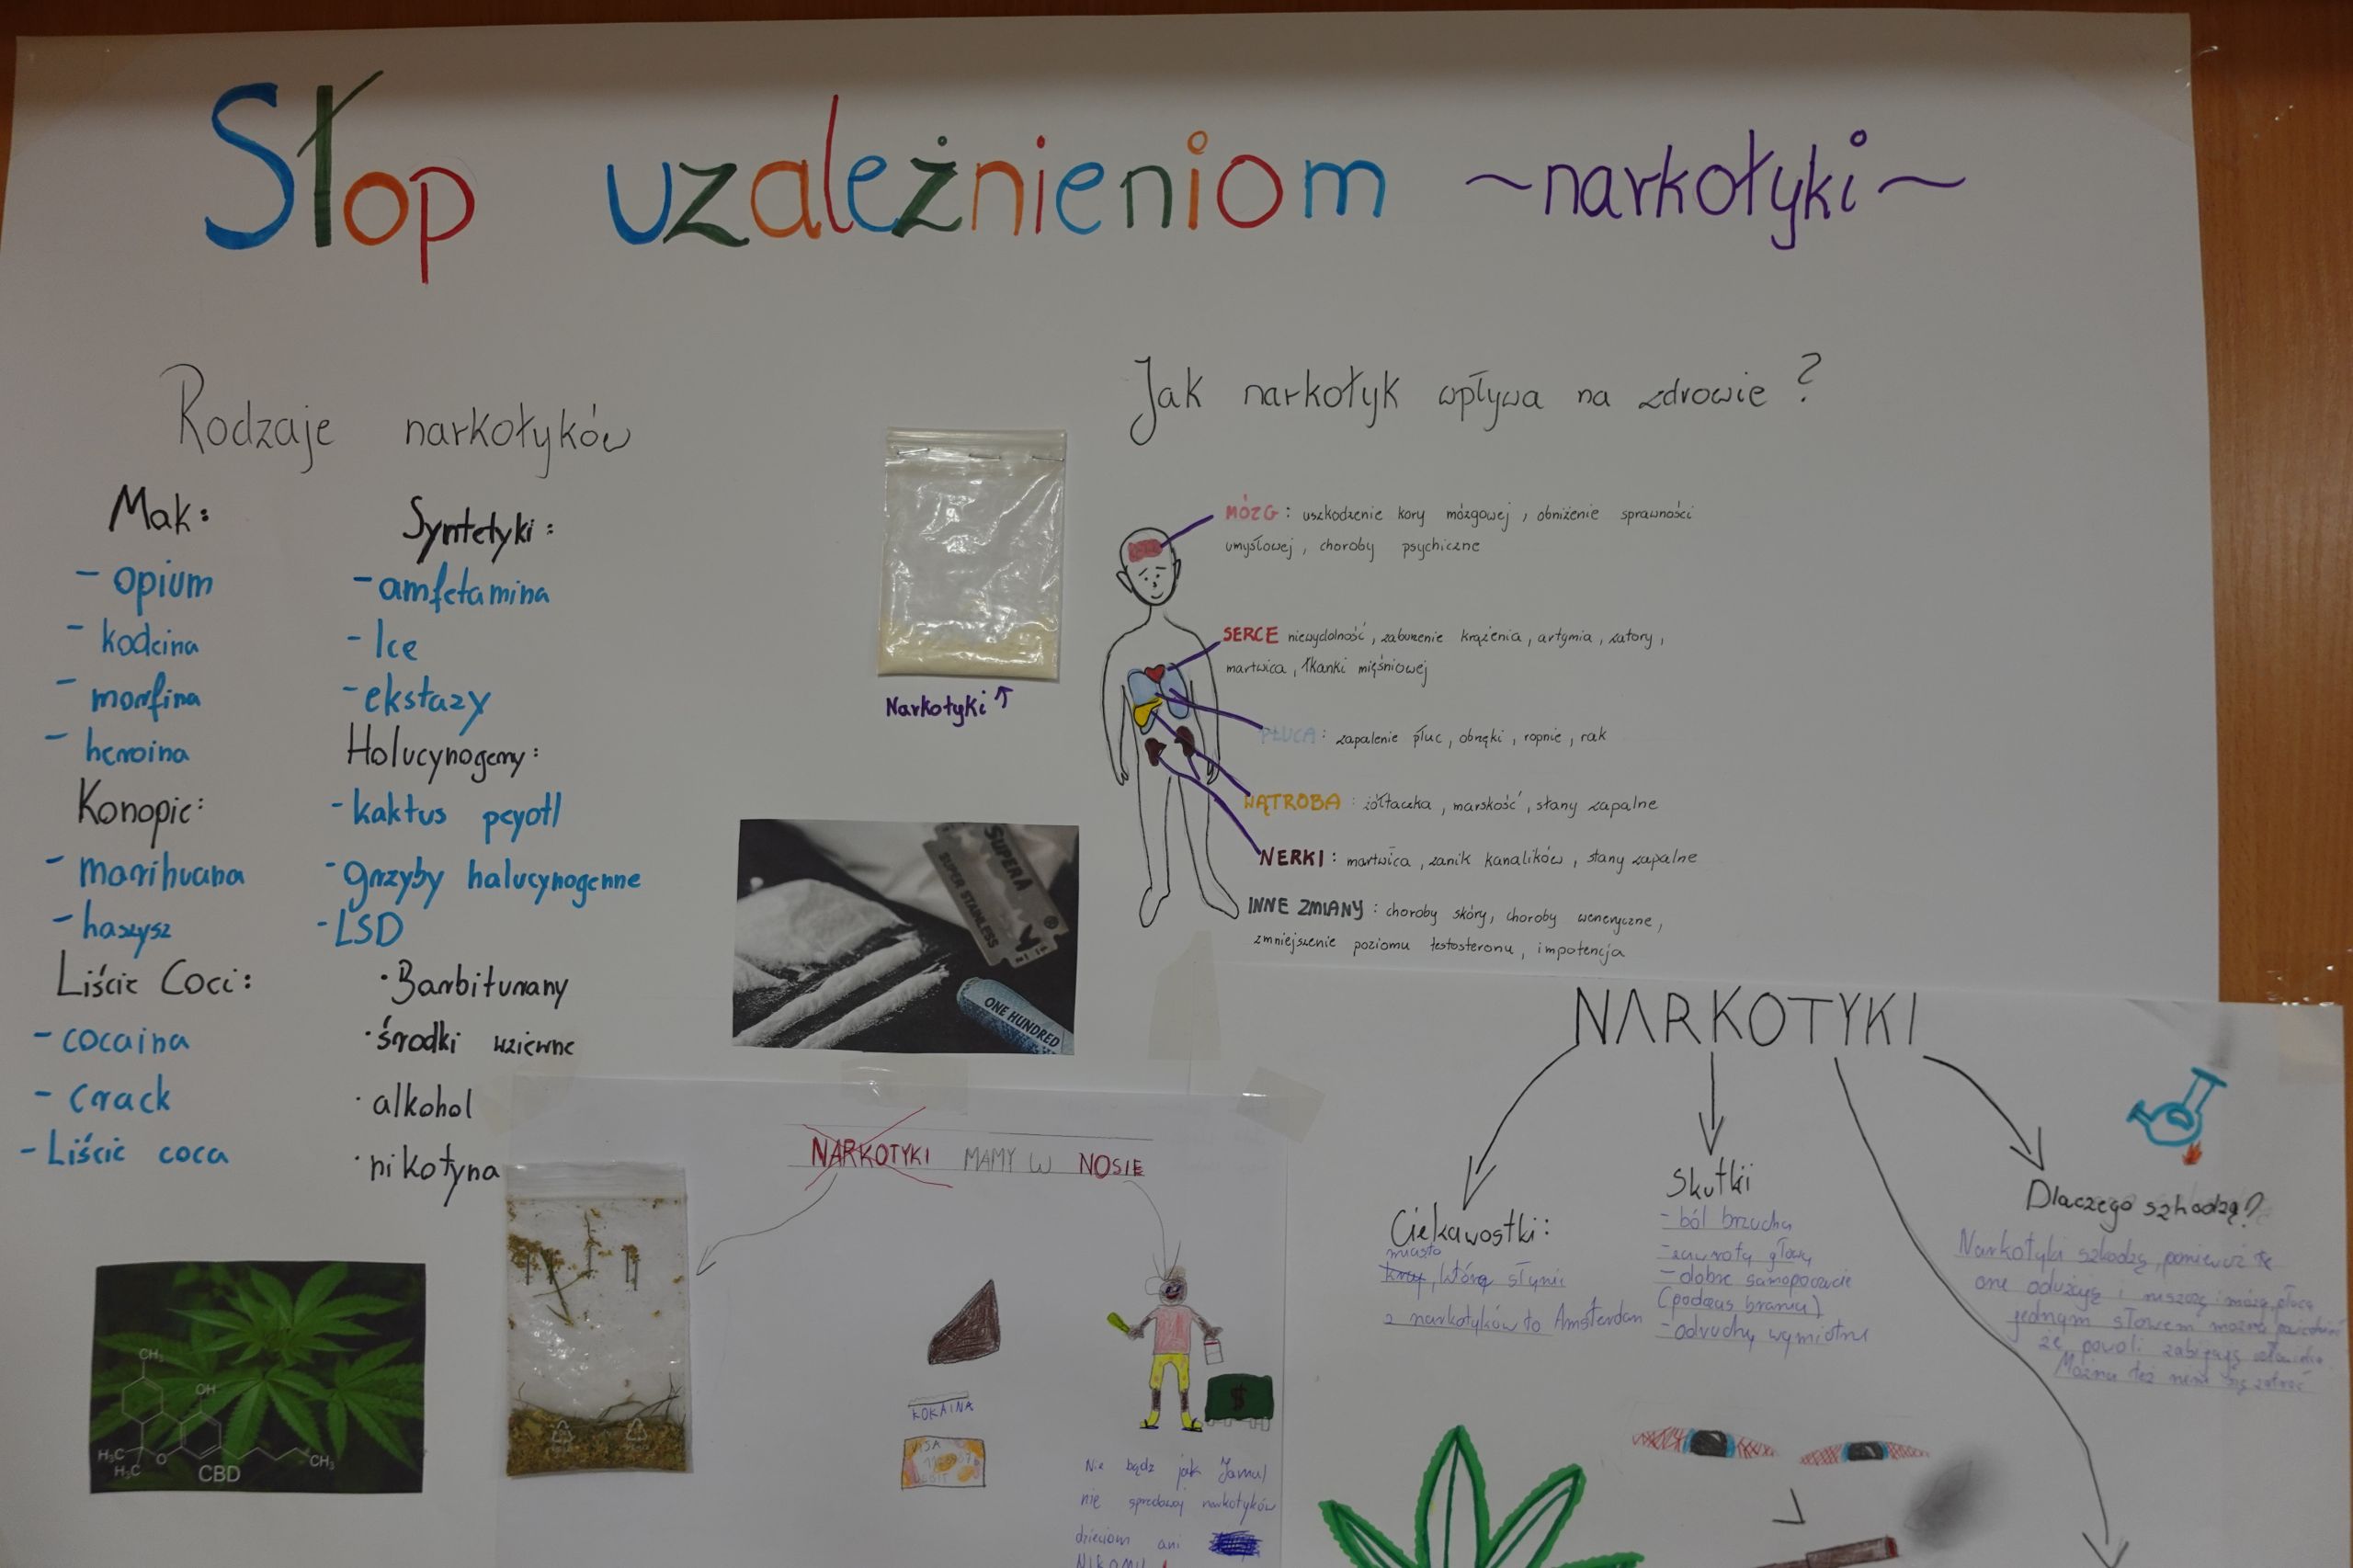 Stop uzależnieniom ~narkotyki~
Rodzaje narkotyków
Mak:
- opium
- kodeina
- morfina
- heroina
Konopie:
- marihuana
- haszysz
Liście Coci:
- cocaina
- crack
- Liście coca
Syntetyki:
- amfetamina
- Ice
- ekstazy
Holucynogemy:
- kaktus peyotl
- grzyby halucynogenne
- LSD
· Barbiturany
· środki wziewne
· alkohol
· nikotyna
Narkotyki ↑
SUPERA
SUPER STAINLESS
ONE HUNDRED
Jak narkotyk wpływa na zdrowie?
MÓZG: uszkodzenie kory mózgowej, obniżenie sprawności
umysłowej, choroby psychiczne
SERCE niewydolność, zaburzenie krążenia, artymia, zatory,
martwica, tkanki mięśniowej
PŁUCA: zapalenie płuc, obrzęki, ropnie, rak
WĄTROBA: żółtaczka, marskość, stany zapalne
NERKI: martwica, zanik kanalików, stany zapalne
INNE ZMIANY: choroby skóry, choroby weneryczne,
zmniejszenie poziomu testosteronu, impotencja
CH₃
OH
H₃C
H₃C
O
CH₃
CBD
NARKOTYKI MAMY W NOSIE
KOKAINA
VISA
$
Nie bądz jak Jamal
nie sprzedawaj narkotyków
dzieciom ani
NIKOMU!
NARKOTYKI
Ciekawostki:
miasto
kraj, którę słynie
z narkotyków to Amsterdam
Skutki
- ból brzucha
- zawroty głowy
- dobre samopoczucie
(podczas brania)
- odruchy wymiotne
Dlaczego szkodzą?
Narkotyki szkodzą, ponieważ te
one odużają i niszczą mózg, płuca
jednym słowem można powiedzieć
że powoli zabijają
Można też nimi się zatruć